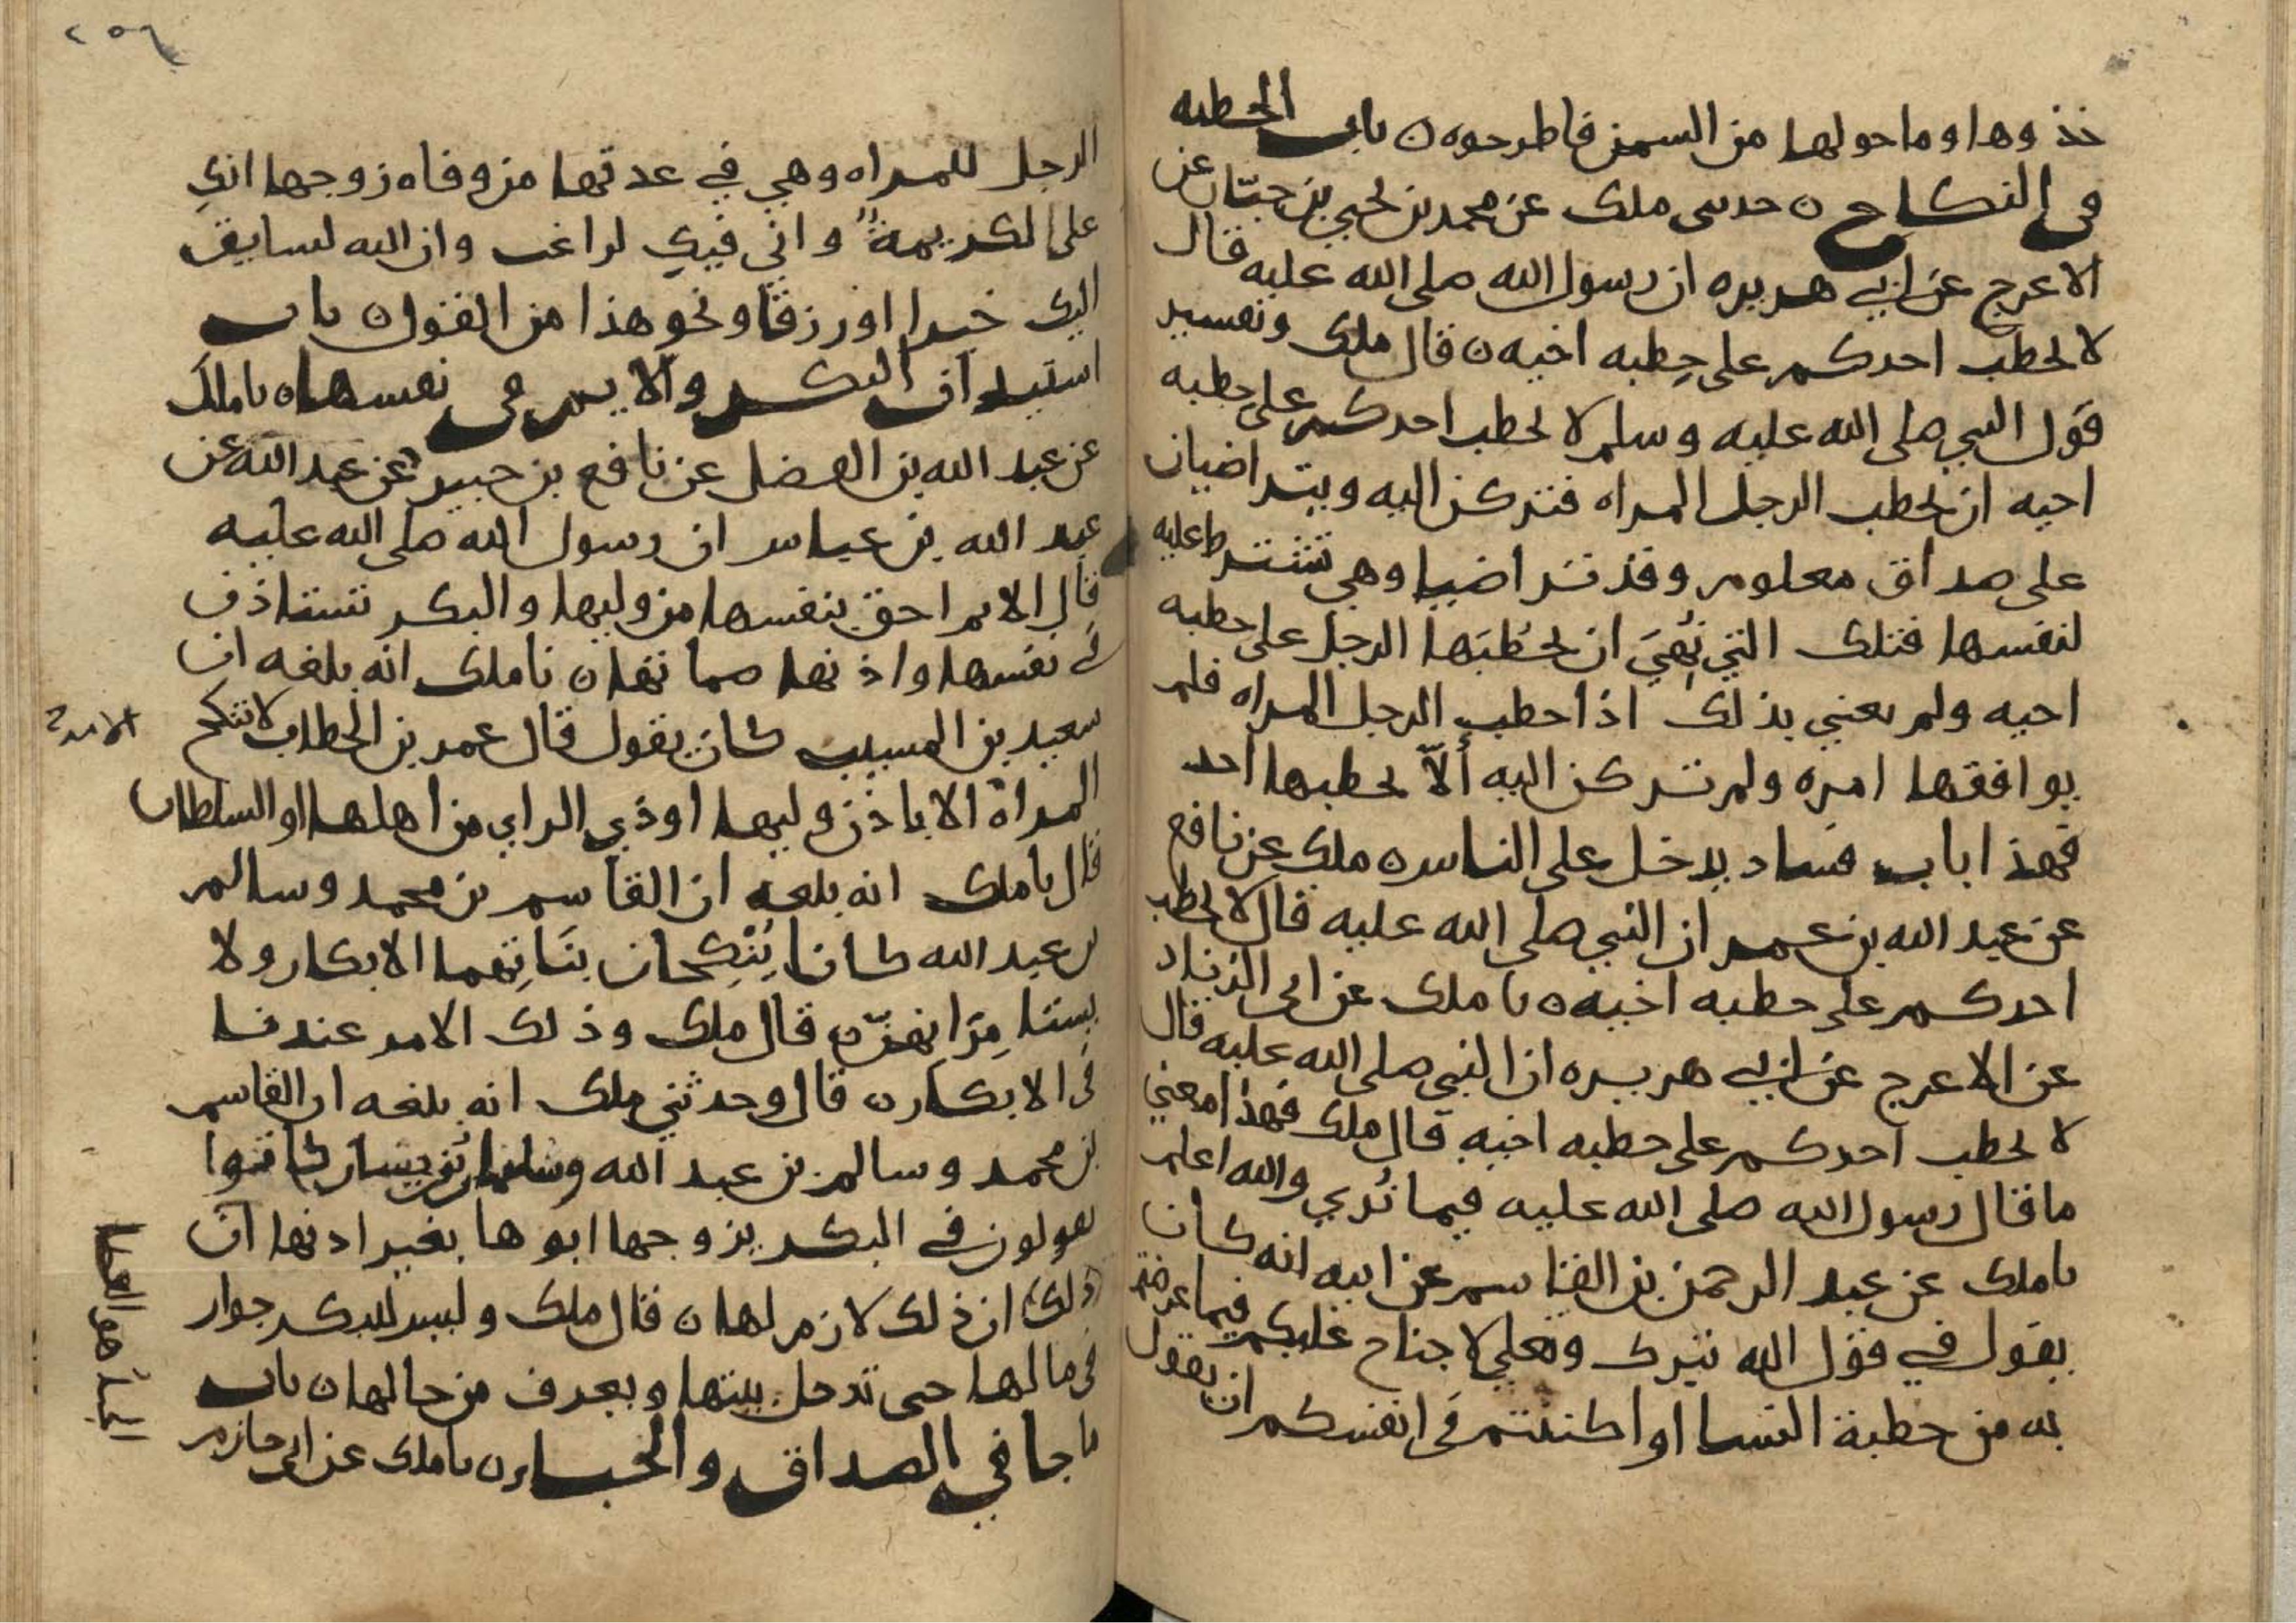 خذوها وما حولها من السمن فاطرحوه ن باب الخطبه
في النكاح ن حدثنى ملك عن محمد بن يحيي بن حبّان عن
الاعرج عن ابي هريره ان رسول الله صلى الله عليه قال
لا يخطب احدكم على خِطبه اخيه ن قال ملك وتفسير
قول النبي صلى الله عليه وسلم لا يخطب احدكم على خطبه
اخيه ان يخطب الرجل المراه فتركن اليه ويتراضيان
على صداق معلوم وقد تراضيا وهي تشترط عليه
لنفسها فتلك التي نُهِيَ ان يخطُبَها الرجل على خطبه
اخيه ولم يعني بذلك اذا خطب الرجل المراه فلم
يوافقها امره ولم تركن اليه ألاّ يخطبها احد
فهذا باب فساد يدخل على الناس ن ملك عن نافع
عن عبد الله بن عمر ان النبي صلى الله عليه قال لا يخطب
احدكم على خطبه اخيه ن نا ملك عن ابي الزناد
عن الاعرج عن ابي هريره ان النبي صلى الله عليه قال
لا يخطب احدكم على خطبه اخيه قال ملك فهذا معني
ما قال رسول الله صلى الله عليه فيما نُري والله اعلم
نا ملك عن عبد الرحمن بن القاسم عن ابيه انه كان
يقول في قول الله تبرك وتعلي لا جناح عليكم فيما عرضتم
به من خطبة النسا او اكننتم في انفسكم ان يقول
٢٥٦
الرجل للمراه وهي في عدتها من وفاه زوجها انكِ
على لكريمةٌ واني فيكِ لراغب وان الله لسايق
اليك خيرا او رزقا ونحو هذا من القول ن باب
استيذان البكر والايم في نفسها ن نا ملك
عن عبد الله بن الفضل عن نافع بن جبير عن عبد الله عن
عبد الله بن عباس ان رسول الله صلى الله عليه
قال الايم احق بنفسها من وليها والبكر تستاذن
في نفسها واذنها صماتها ن نا ملك انه بلغه ان
سعيد بن المسيب كان يقول قال عمر بن الخطاب لا تنكح
المراة الا باذن وليها او ذي الراي من اهلها او السلطان
قال نا ملك انه بلغه ان القاسم بن محمد وسالم
بن عبد الله كانا يُنْكِحان بنَاتِهما الابكار ولا
يستامِرَانهنّ ن قال ملك وذلك الامر عندنا
في الابكار ن قال وحدثني ملك انه بلغه ان القاسم
بن محمد وسالم بن عبد الله وسليمان بن يسار كانوا
يقولون في البكر يزوجها ابوها بغير اذنها ان
ذلك ان ذلك لازم لها ن قال ملك وليس للبكر جواز
في مالها حتى تدخل بيتها ويعرف من حالها ن باب
ما جا في الصداق والحباء ن نا ملك عن ابي حازم
الحباء هو العطا